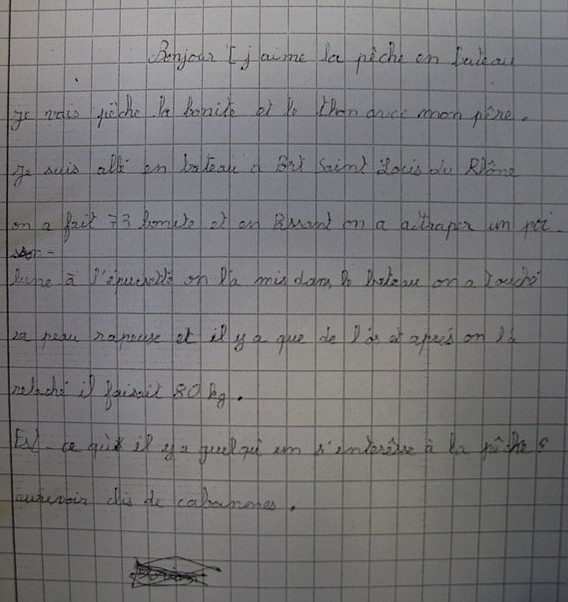 Bonjour [j aime la pêche en bateau
je vais pêche la bonite et le thon avec mon père.
je suis allé en bateau a Port Saint Louis du Rhône
on a fait 73 bonite et en Rssant on a attraper un poi-
son-
lune à l'épuisette on l'a mis dans le bateau on a touché
sa peau rapeuse et il y a que de l'os et aprés on l'a
relaché il faisait 80 kg.
Es- ce qu'il il y a quelqu'un s'interêsse à la pêche ?
aurevoir clis de cabannes.